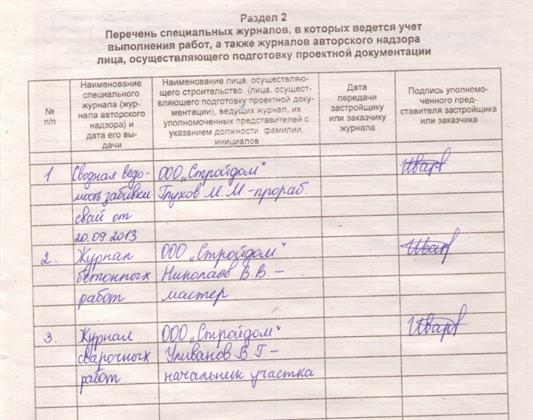 Раздел 2
Перечень специальных журналов, в которых ведется учет
выполнения работ, а также журналов авторского надзора
лица, осуществляющего подготовку проектной документации
№
п/п
Наименование
специального
журнала (жур-
нала авторского
надзора) и
дата его вы-
дачи
Наименование лица, осуществляю-
щего строительство (лица, осущест-
вляющего подготовку проектной доку-
ментации), ведущих журнал, их
уполномоченных представителей с
указанием должности, фамилии,
инициалов
Дата
передачи
застройщику
или заказчику
журнала
Подпись уполномо-
ченного пред-
ставителя застройщика
или заказчика
1
Сводная ведо-
мость забивки
свай от
20.09.2013
ООО „Стройдом“
Глухов М.М.-прораб.
2.
Журнал
бетонных
работ
ООО „Стройдом“
Николаев В.В. –
мастер
3.
Журнал
сварочных
работ
ООО „Стройдом“
Уливанов В.Г –
начальник участка